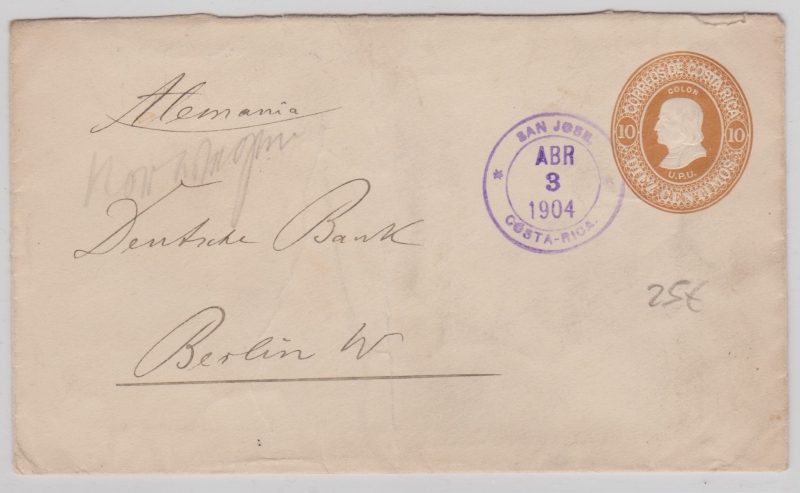 Alemania
Norwegen
Deutsche Bank
Berlin W
SAN JOSE.
ABR
3
1904
COSTA-RICA.
CORREOS DE COSTA RICA
COLON
10
10
U.P.U.
DIEZ CENTIMOS
25€